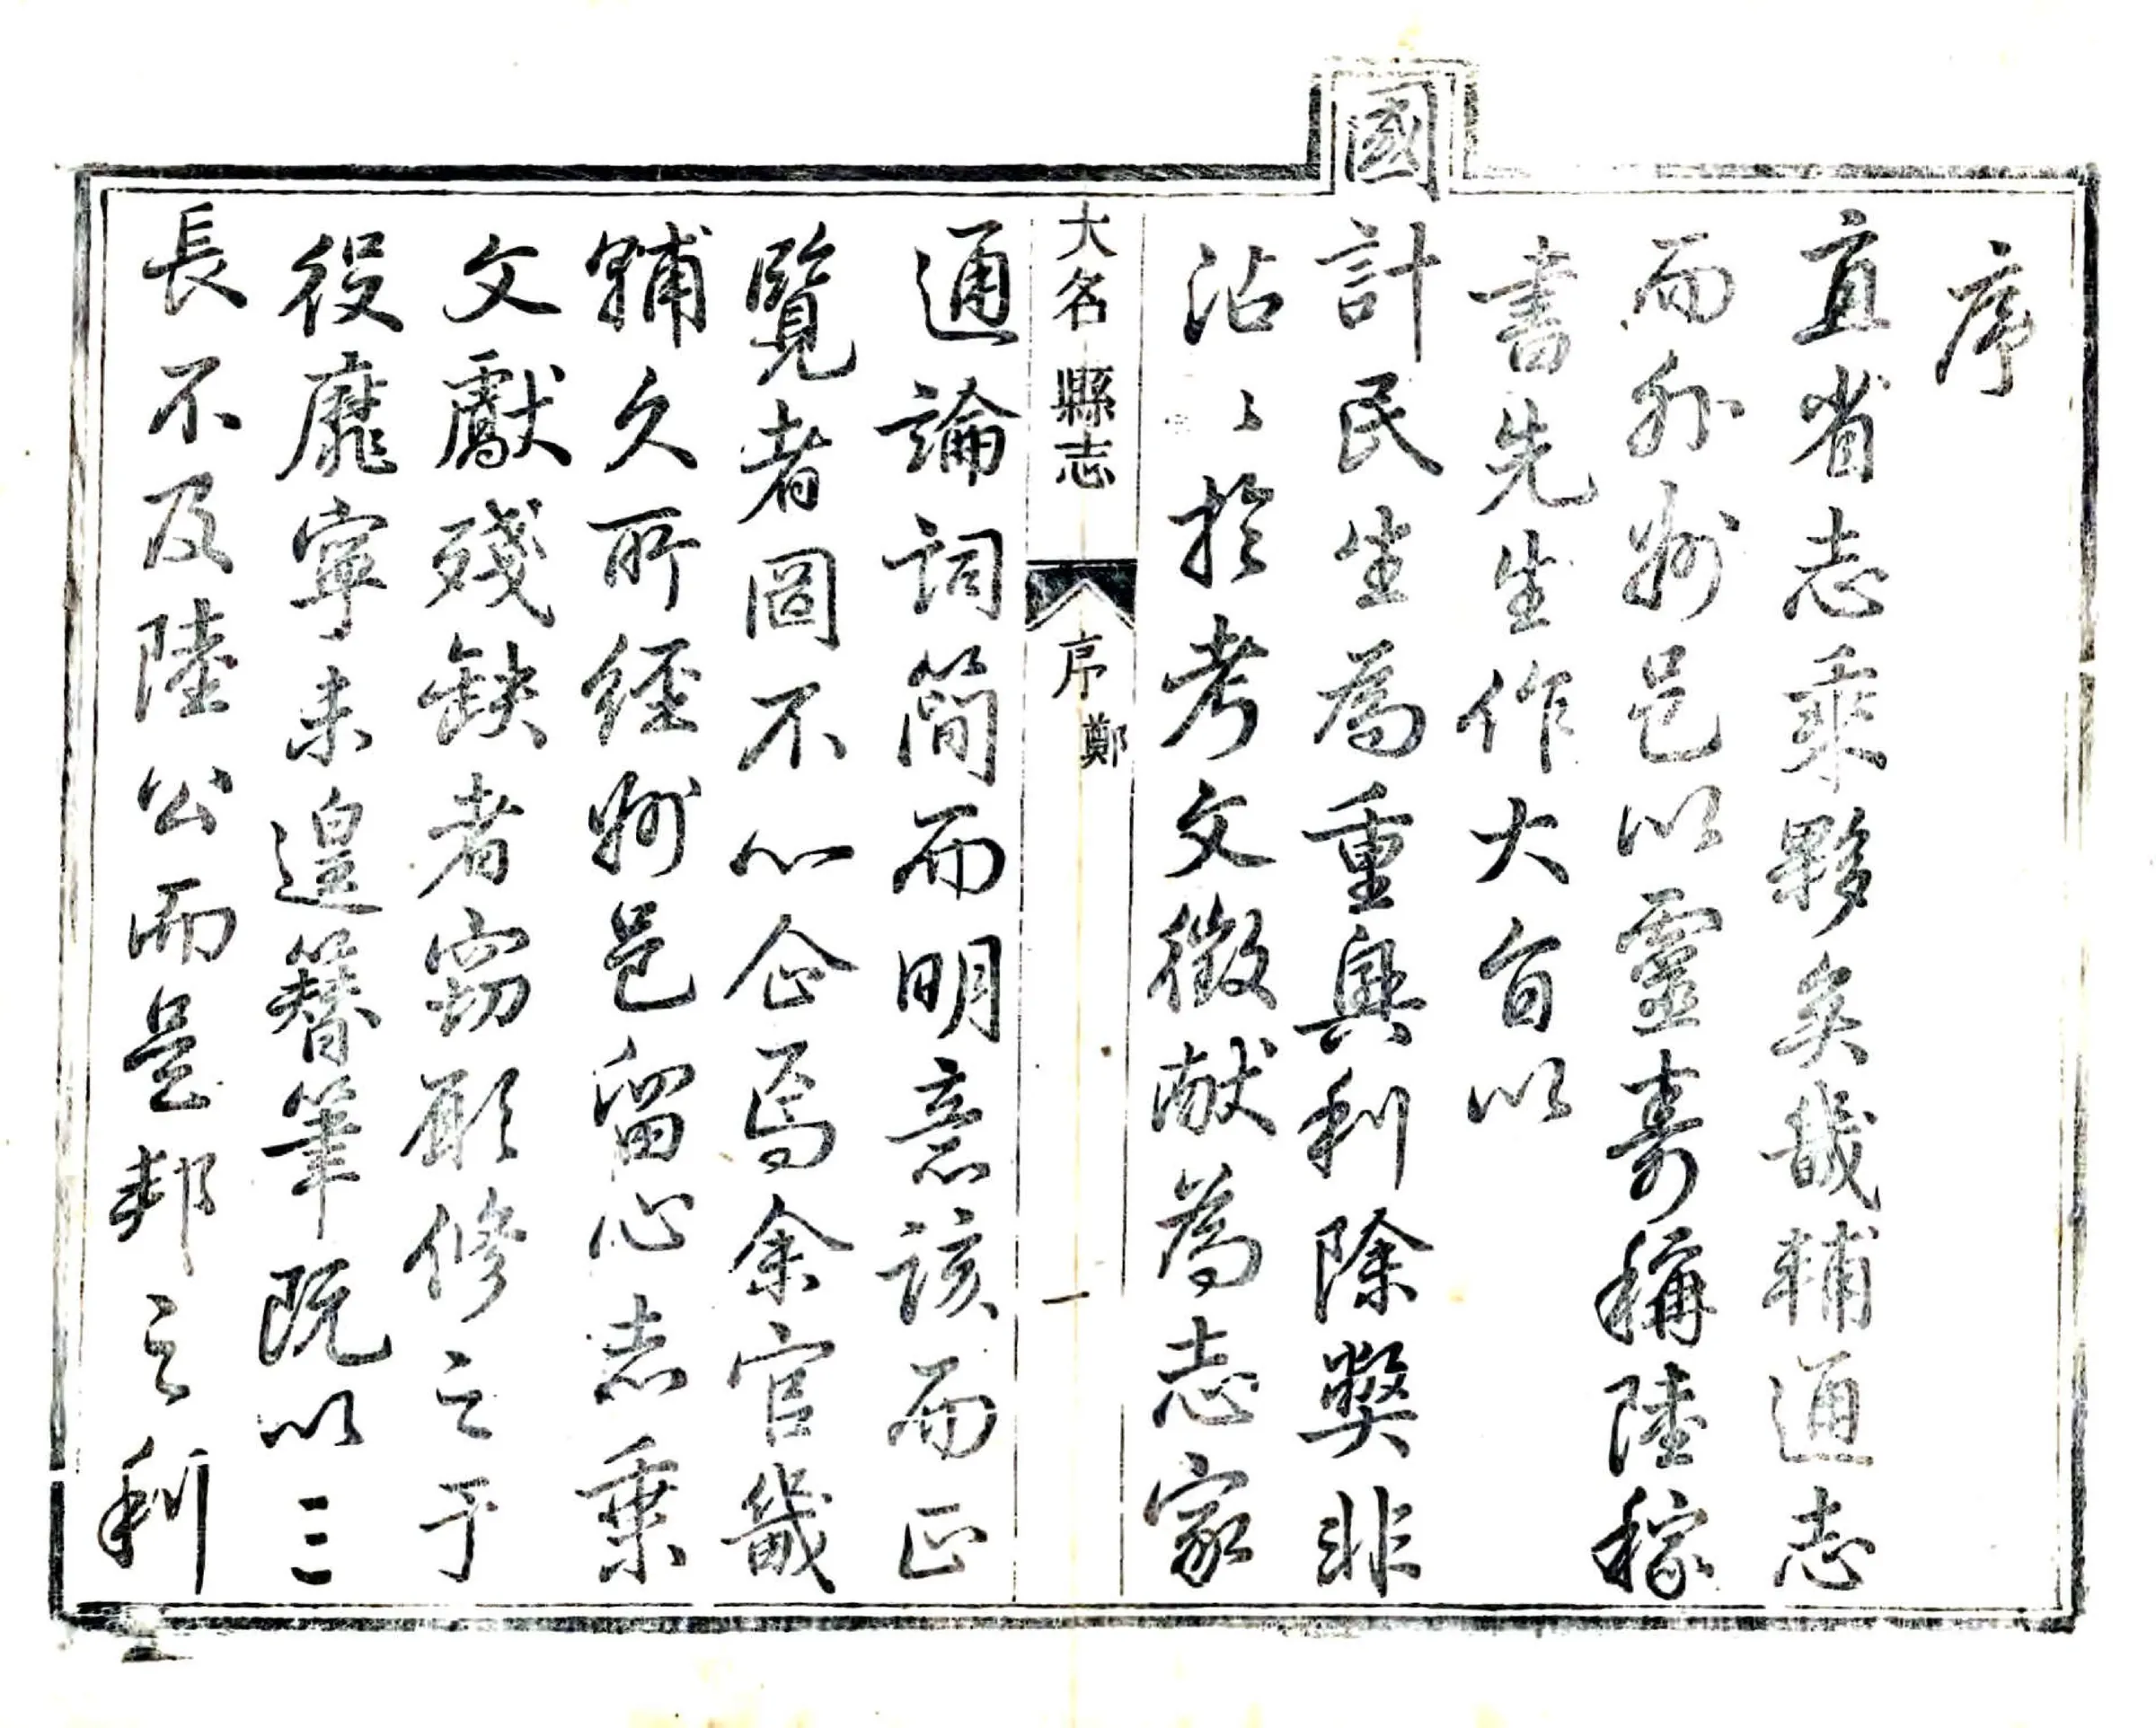 序
直省志乘夥矣畿輔通志
而外州邑以靈壽稱陸稼
書先生作大旨以
國
計民生為重興利除弊非
沾〻於考文徵献為志家
大名縣志
序鄭
一
通論詞簡而明意該而正
覽者圖不心企焉余官畿
輔久所經州邑留心志乘
文獻殘缺者竊願修之于
役靡寧未遑簪筆既以三
長不及陸公而是邦之利